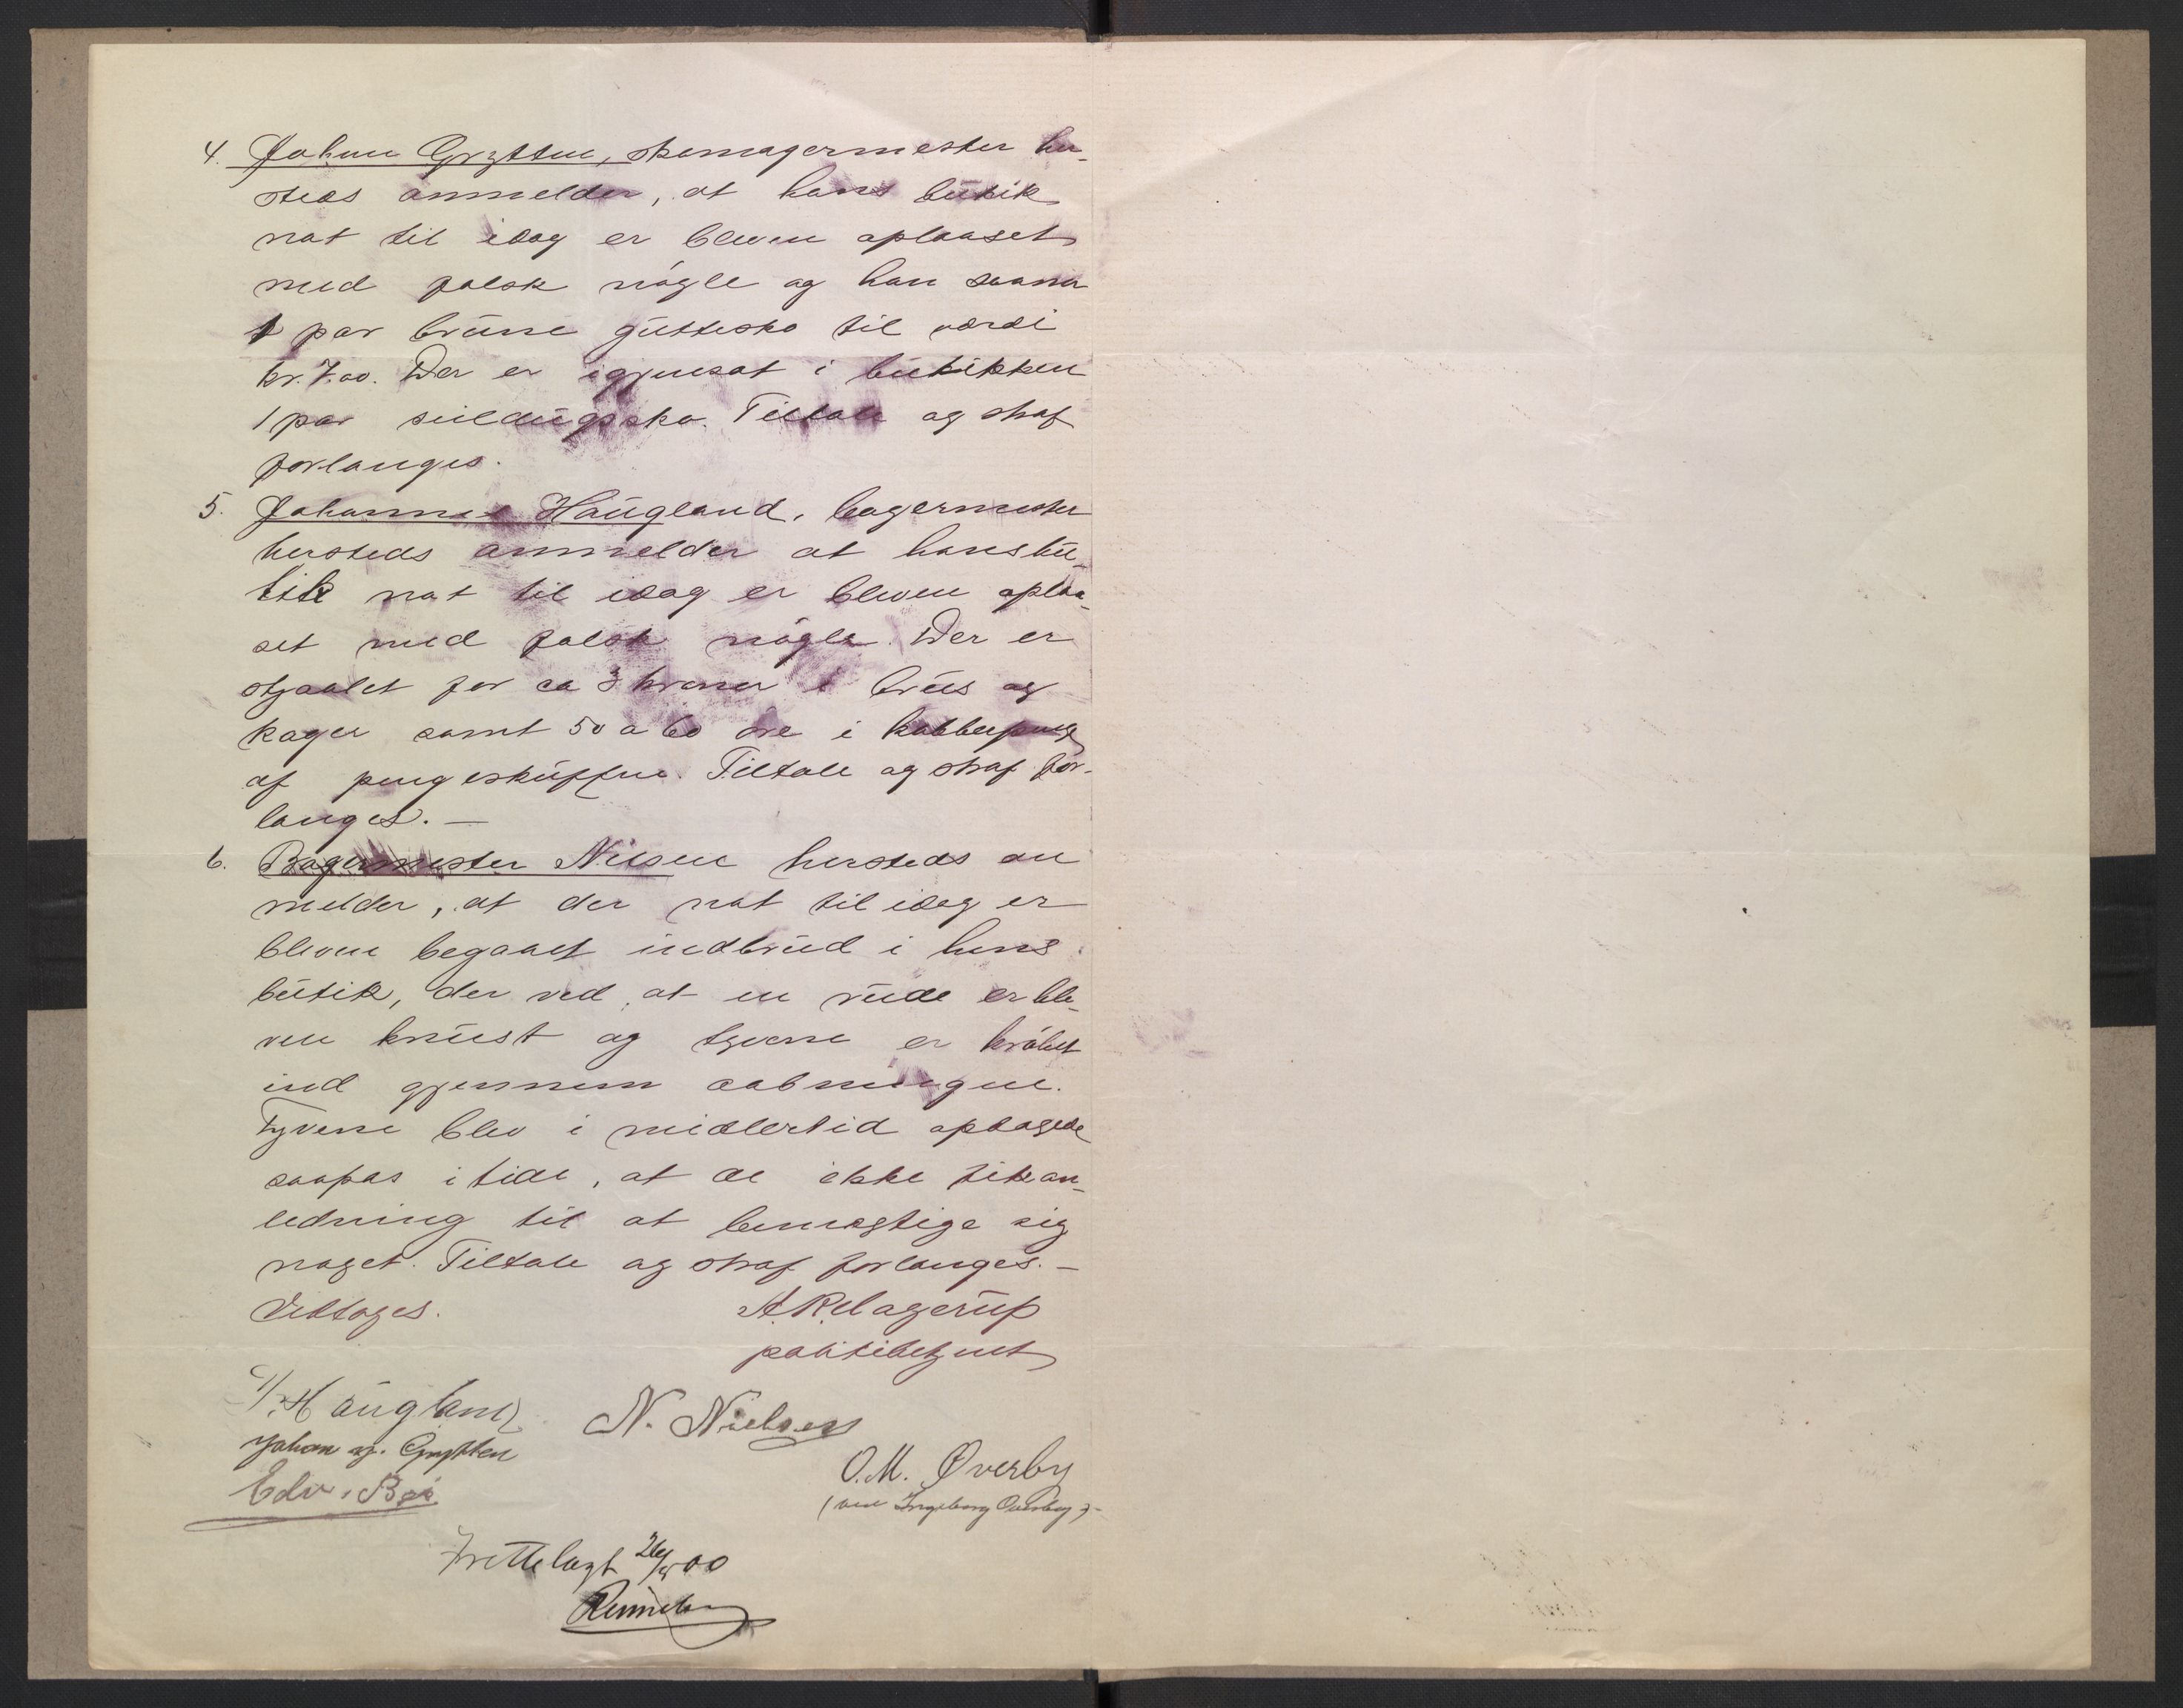 4. Johan Grytten, skomagermester her-
steds anmelder, at hans butik
nat til idag er bleven oplaaset
med falsk nøgle og han savner
1 par brune guttesko til værdi
kr. 7.00. Der er igjensat i butikken
1 par sko. Tiltale og straf
forlanges.
5. Johannes Haugland, bagermester
hersteds anmelder at hans bu-
tik nat til idag er bleven oplaa-
set med falsk nøgle. Der er
stjaalet for ca 3 kroner i brus og
kager samt 50 a 60 øre i kobberpenge
af pengeskuffen. Tiltale og straf for-
langes. —
6. Bagermester Nilsen hersteds an
melder, at der nat til idag er
bleven begaaet indbrud i hans
butik, der ved, at en rude er ble-
ven knust og tyvene er krøbet
ind gjennem aabningen.
Tyvene blev i midlertid opdagede
saapas i tide, at de ikke fik an-
ledning til at bemægtige sig
noget. Tiltale og straf forlanges. —
Vedtages.
A. Klagerup
politibetjent
J. Haugland
N. Nielsen
Johan Grytten
O. M. Øverby
Edv. Bøe
(ved Ingeborg Øverby)
Fremlagt 26/5 00